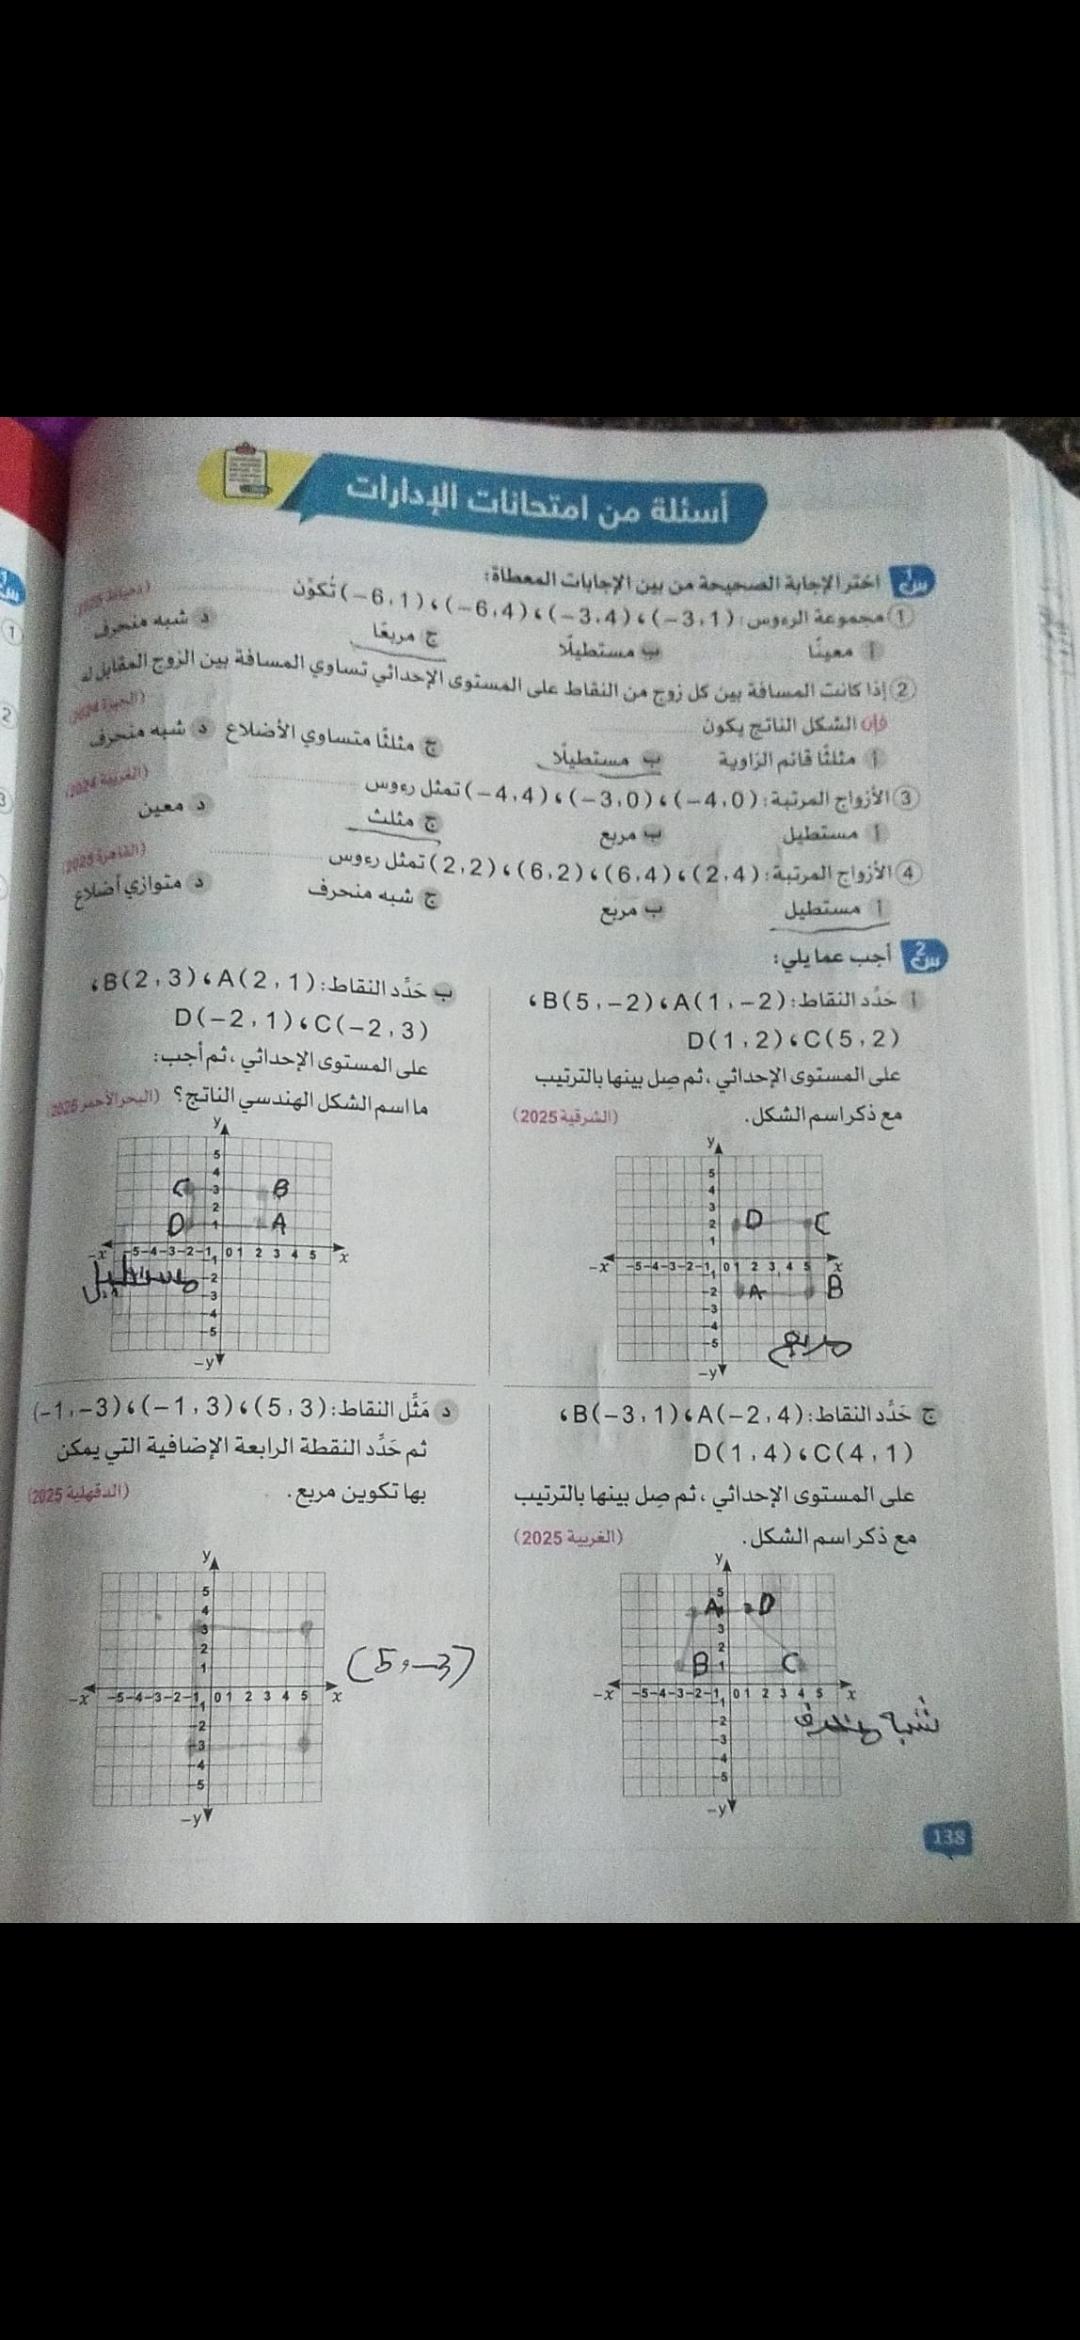 أسئلة من امتحانات الإدارات
س1 اختر الإجابة الصحيحة من بين الإجابات المعطاة:
① مجموعة الرءوس: (−3, 1)، (−3, 4)، (−6, 4)، (−6, 1) تُكوِّن
أ معينًا ب مستطيلًا ج مربعًا د شبه منحرف
② إذا كانت المسافة بين كل زوج من النقاط على المستوى الإحداثي تساوي المسافة بين الزوج المقابل له
فإن الشكل الناتج يكون (الجيزة 2024)
أ مثلثًا قائم الزاوية ب مستطيلًا ج مثلثًا متساوي الأضلاع د شبه منحرف
③ الأزواج المرتبة: (−4, 0)، (−3, 0)، (−4, 4) تمثل رءوس (الغربية 2024)
أ مستطيل ب مربع ج مثلث د معين
④ الأزواج المرتبة: (2, 4)، (6, 4)، (6, 2)، (2, 2) تمثل رءوس (القاهرة 2023)
أ مستطيل ب مربع ج شبه منحرف د متوازي أضلاع
س2 أجب عما يلي:
أ حَدِّد النقاط: A(1, −2)، B(5, −2)،
C(5, 2)، D(1, 2)
على المستوى الإحداثي، ثم صِل بينها بالترتيب
مع ذكر اسم الشكل. (الشرقية 2025)
y
5
4
3
2
1
−x −5 −4 −3 −2 −1 0 1 2 3 4 5 x
−1
−2
−3
−4
−5
−y
D C
A B
مربع
ب حَدِّد النقاط: A(2, 1)، B(2, 3)،
C(−2, 3)، D(−2, 1)
على المستوى الإحداثي، ثم أجب:
ما اسم الشكل الهندسي الناتج؟ (البحر الأحمر 2025)
y
5
4
3
2
1
−x −5 −4 −3 −2 −1 0 1 2 3 4 5 x
−1
−2
−3
−4
−5
−y
C B
D A
مستطيل
ج حَدِّد النقاط: A(−2, 4)، B(−3, 1)،
C(4, 1)، D(1, 4)
على المستوى الإحداثي، ثم صِل بينها بالترتيب
مع ذكر اسم الشكل. (الغربية 2025)
y
5
4
3
2
1
−x −5 −4 −3 −2 −1 0 1 2 3 4 5 x
−1
−2
−3
−4
−5
−y
A D
B C
شبه منحرف
د مَثِّل النقاط: (5, 3)، (−1, 3)، (−1, −3)
ثم حَدِّد النقطة الرابعة الإضافية التي يمكن
بها تكوين مربع. (الدقهلية 2025)
y
5
4
3
2
1
−x −5 −4 −3 −2 −1 0 1 2 3 4 5 x
−1
−2
−3
−4
−5
−y
(5, −3)
138